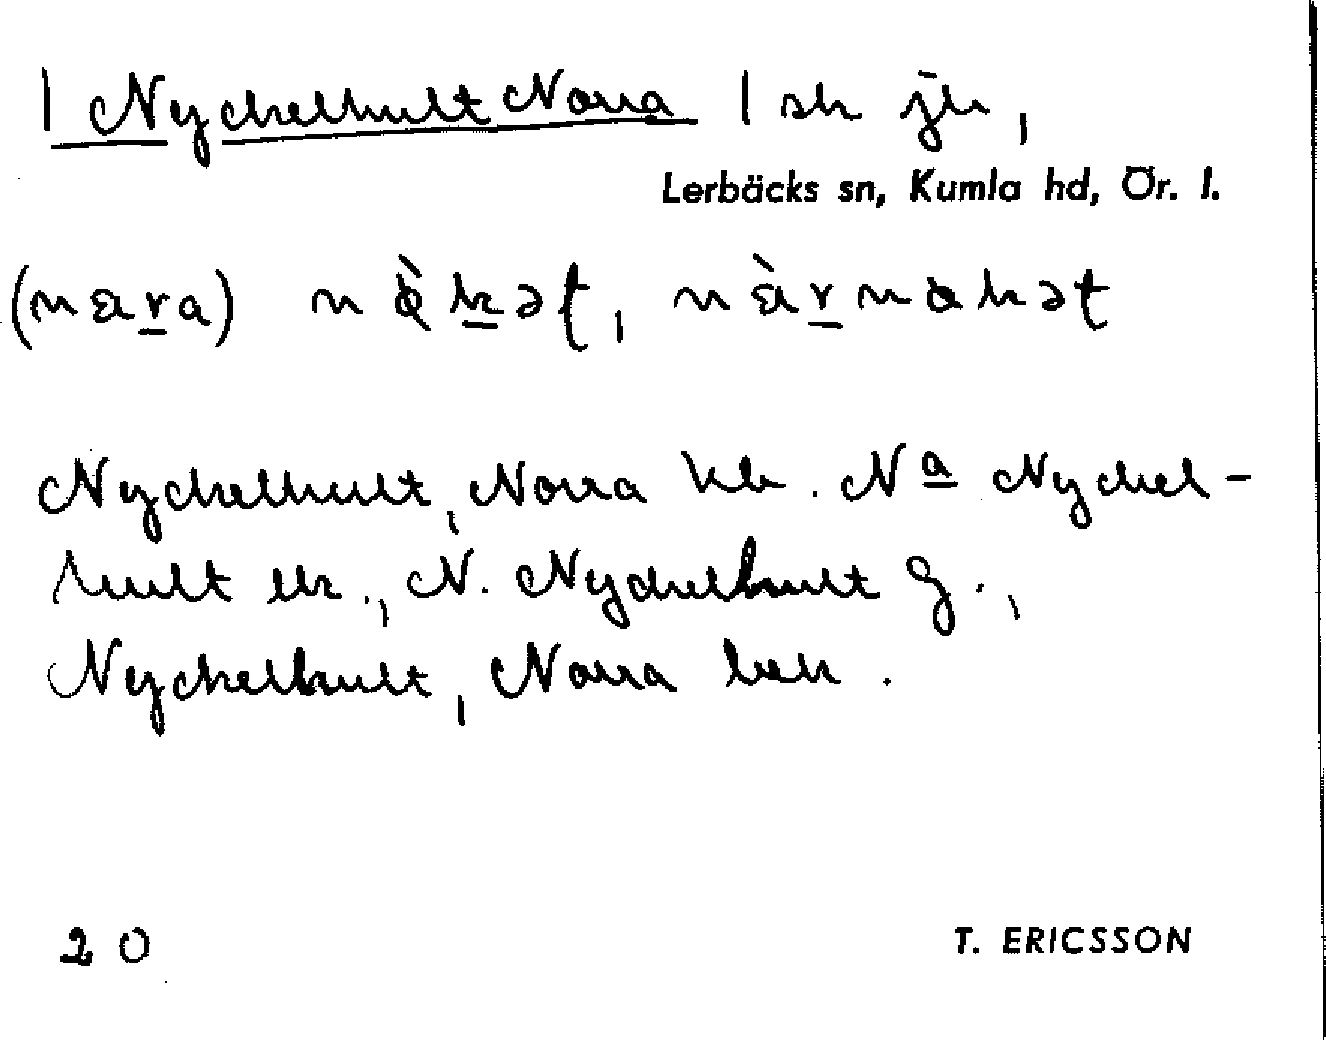 | Nyckelhult Norra | sk jk,
Lerbäcks sn, Kumla hd, Ör. l.
(nara) nòkət, nàrnokət
Nyckelhult, Norra kb. Nª Nyckel-
hult ek., N. Nyckelhult g.,
Nyckelhult, Norra bek.
20
T. ERICSSON